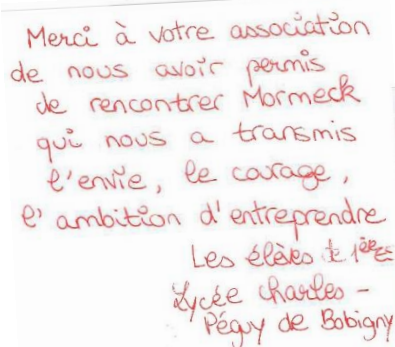 Merci à votre association
de nous avoir permis
de rencontrer Mormeck
qui nous a transmis
l'envie, le courage,
l'ambition d'entreprendre
Les élèves de 1ères
Lycée Charles -
Péguy de Bobigny